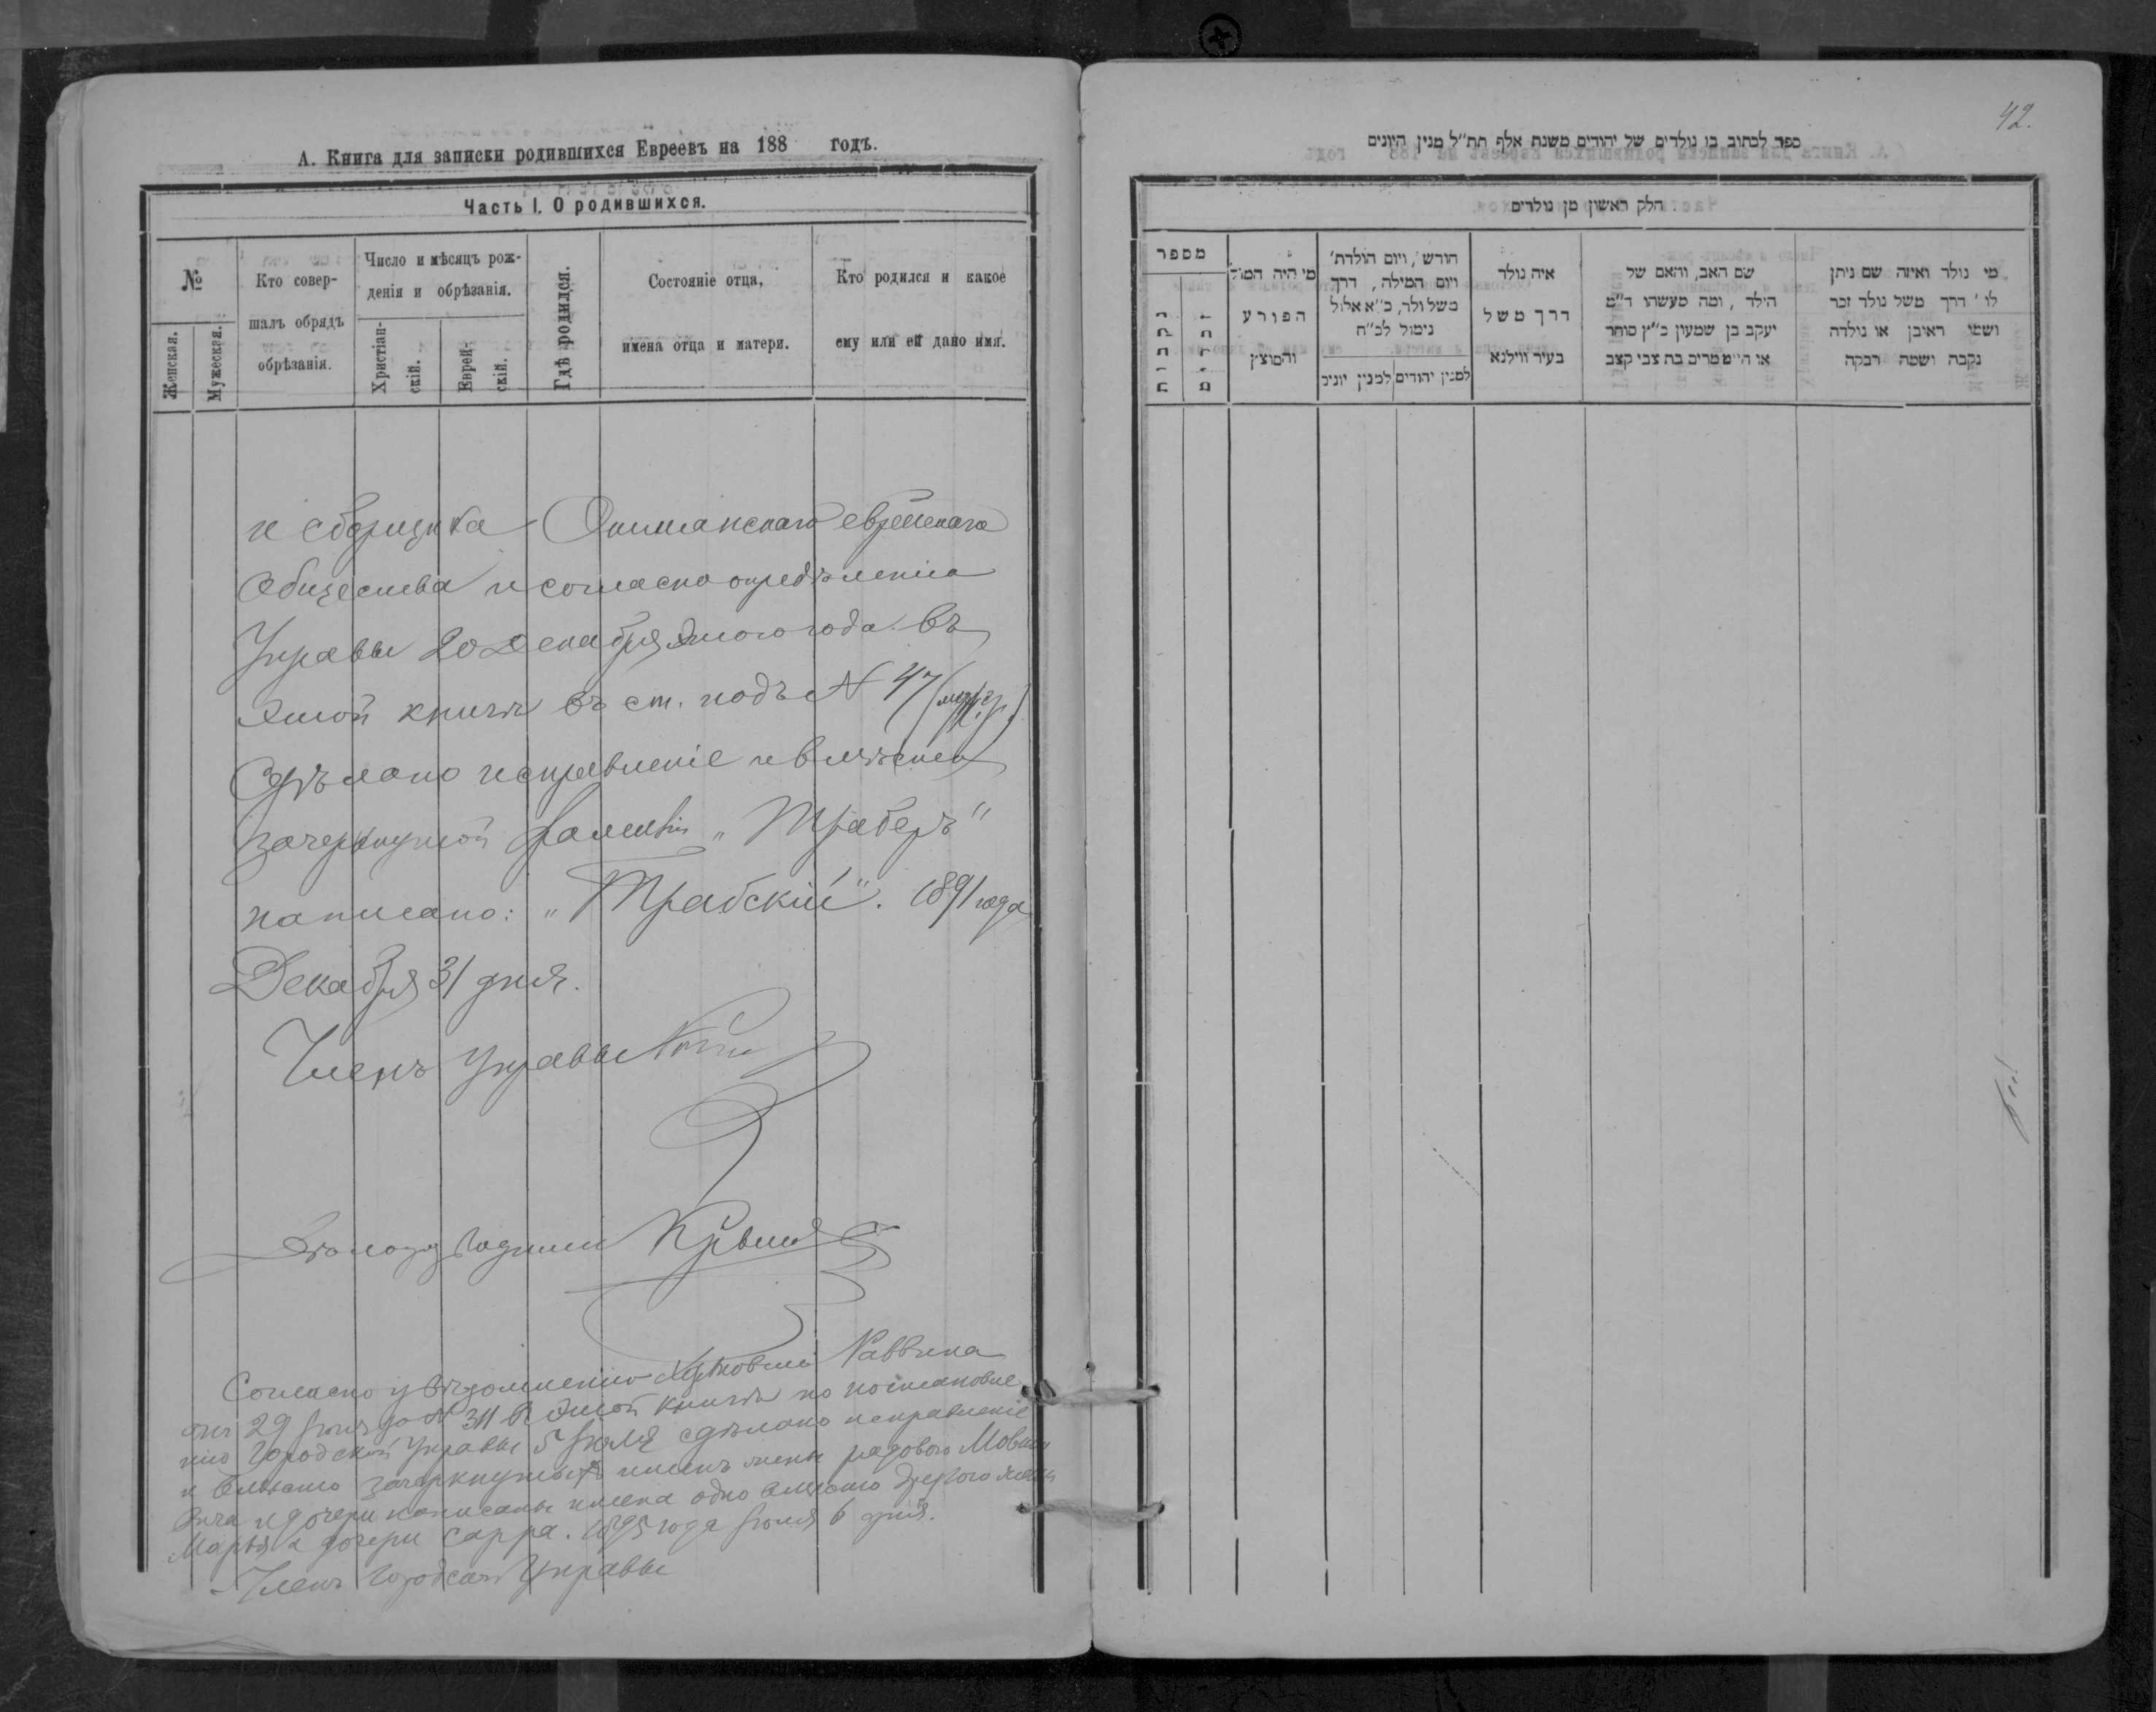 А. Книга для записки родившихся Евреевъ на 188 годъ.
Часть I. О родившихся.
№
Женская.
Мужеская.
Кто совер-
шалъ обрядъ
обрѣзанія.
Число и мѣсяцъ рож-
денія и обрѣзанія.
Христіан-
скій.
Еврей-
скій.
Гдѣ родился.
Состояніе отца,
имена отца и матери.
Кто родился и какое
ему или ей дано имя.
и сборщика Ошмянскаго еврейскаго
Общества и согласно опредѣленія
Управы 20 Декабря этого года въ
этой книгѣ въ ст. подъ N 47
Сдѣлано исправленіе и вмѣсто
зачеркнутой фамиліи „Траберъ"
написано: „Трабскій". 1891 года
Декабря 31 дня.
Членъ Управы
Согласно увѣдомленію Раввина
отъ 29 Іюня за N 311 въ этой книгѣ по постановле
нію Городской Управы 5 Іюля сдѣлано исправленіе
и вмѣсто зачеркнутыхъ именъ жены рядового Мовши
и дочери написаны имена одно вмѣсто другого жены
Марья а дочери Сарра. 1895 года Іюля 6 дня.
Членъ Городской Управы
42.
ספר לכתוב בו נולדים של יהודים משנת אלף תת״ל מנין היונים
חלק ראשון מן נולדים
מספר
נקבות
זכרים
מי היה המוהל
הפורע
והמוצץ
חורש, ויום הולדת,
ויום המילה, דרך
משל ולד, כ״א אלול
נימול לכ״ח
למנין יהודים
למנין יונים
איה נולד
דרך משל
בעיר ווילנא
שם האב, והאם של
הילד, ומה מעשהו ד״מ
יעקב בן שמעון כ״ץ סוחר
או חייט מרים בת צבי קצב
מי נולד ואיזה שם ניתן
לו, דרך משל נולד זכר
ושמו ראובן או נולדה
נקבה ושמה רבקה